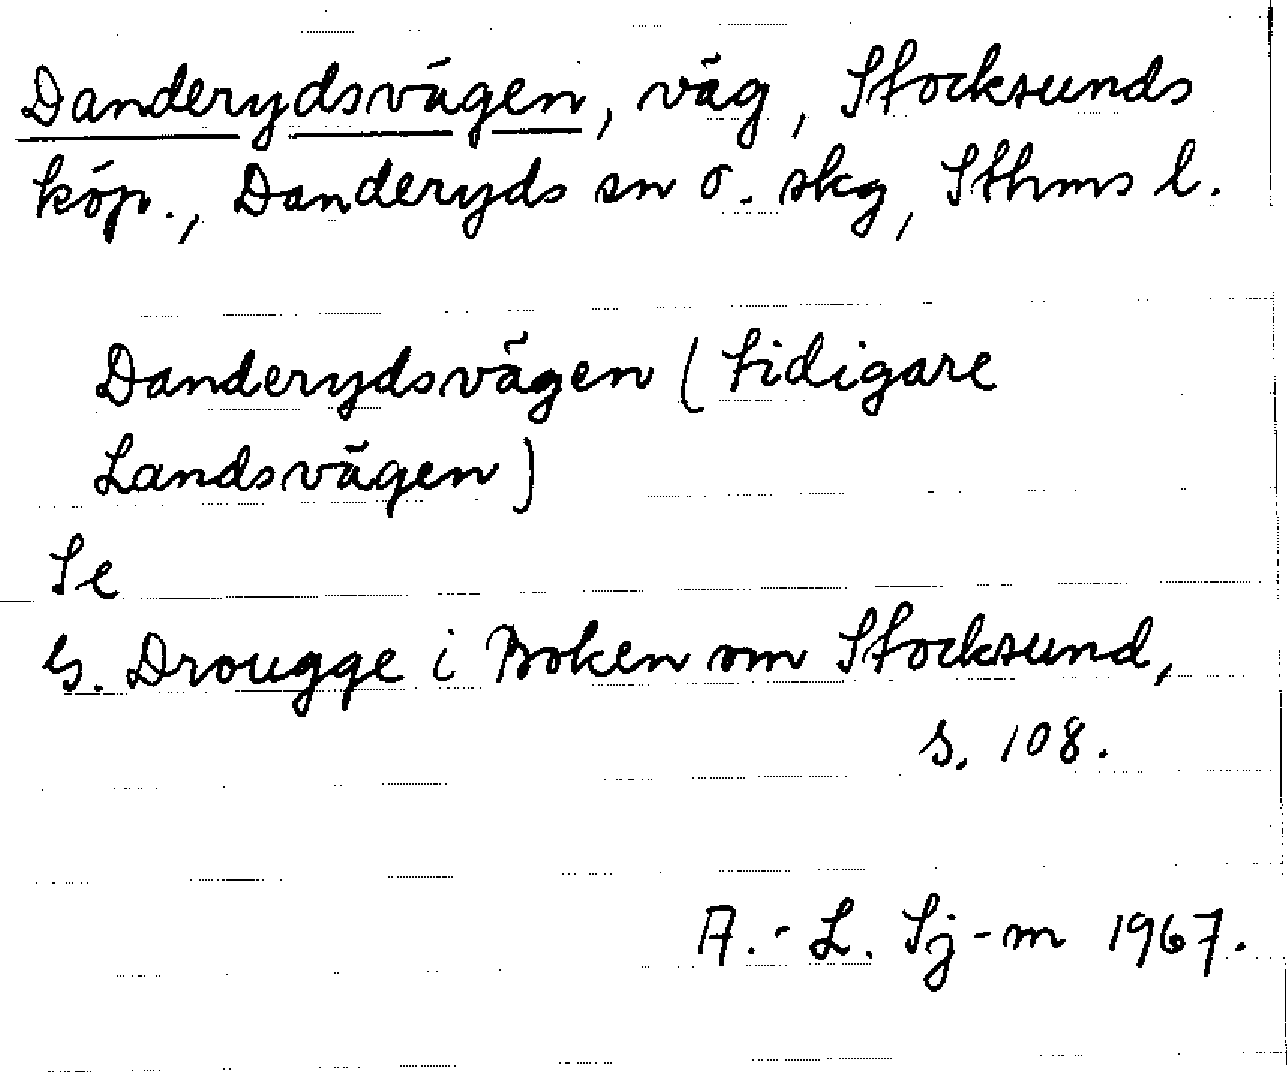 Danderydsvägen, väg, Stocksunds
köp., Danderyds sn o. skg, Sthms l.
Danderydsvägen (tidigare
Landsvägen)
Se
G. Drougge i Boken om Stocksund,
s. 108.
A.-L. Sj-m 1967.